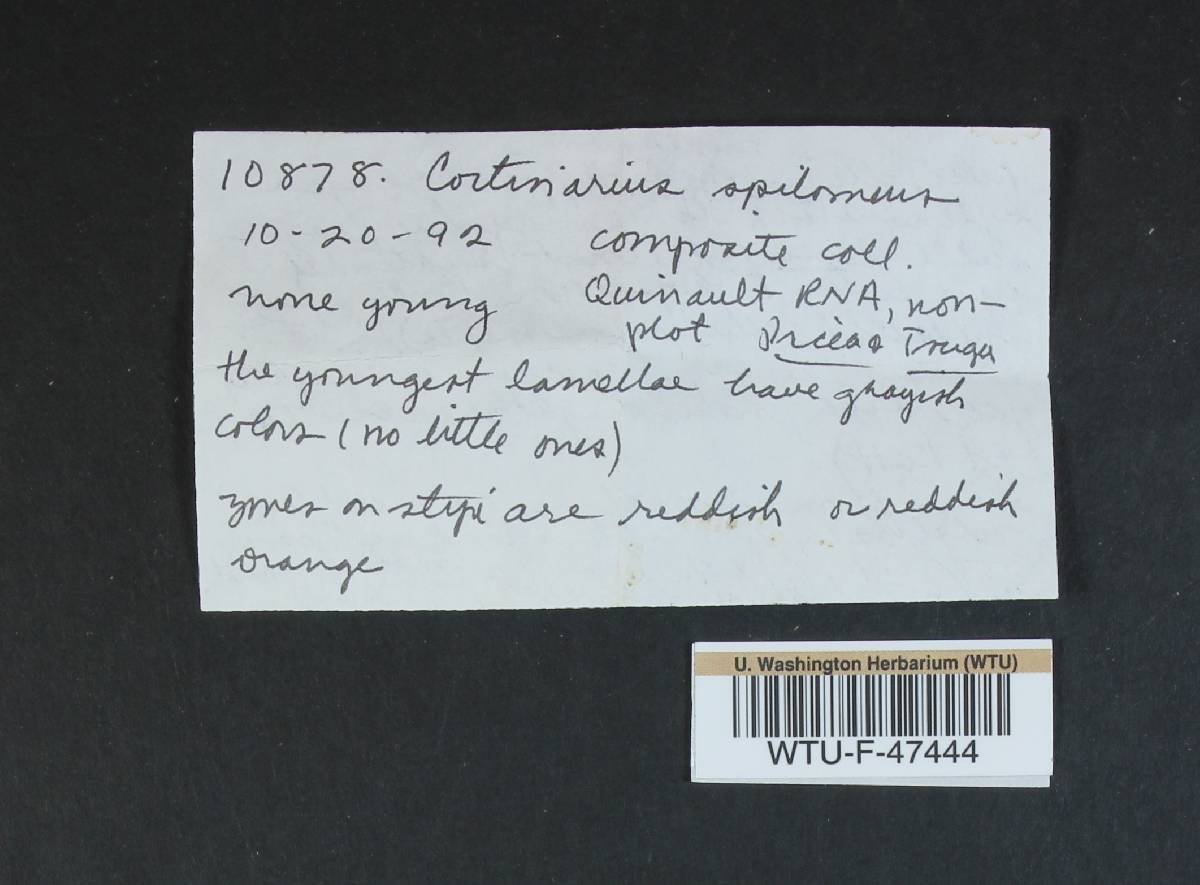 10878. Cortinarius spilomeus
10-20-92 composite coll.
none young Quinault RNA, non-
plot Picea & Tsuga
the youngest lamellae have grayish
colors (no little ones)
zones on stipe are reddish or reddish
orange
U. Washington Herbarium (WTU)
WTU-F-47444